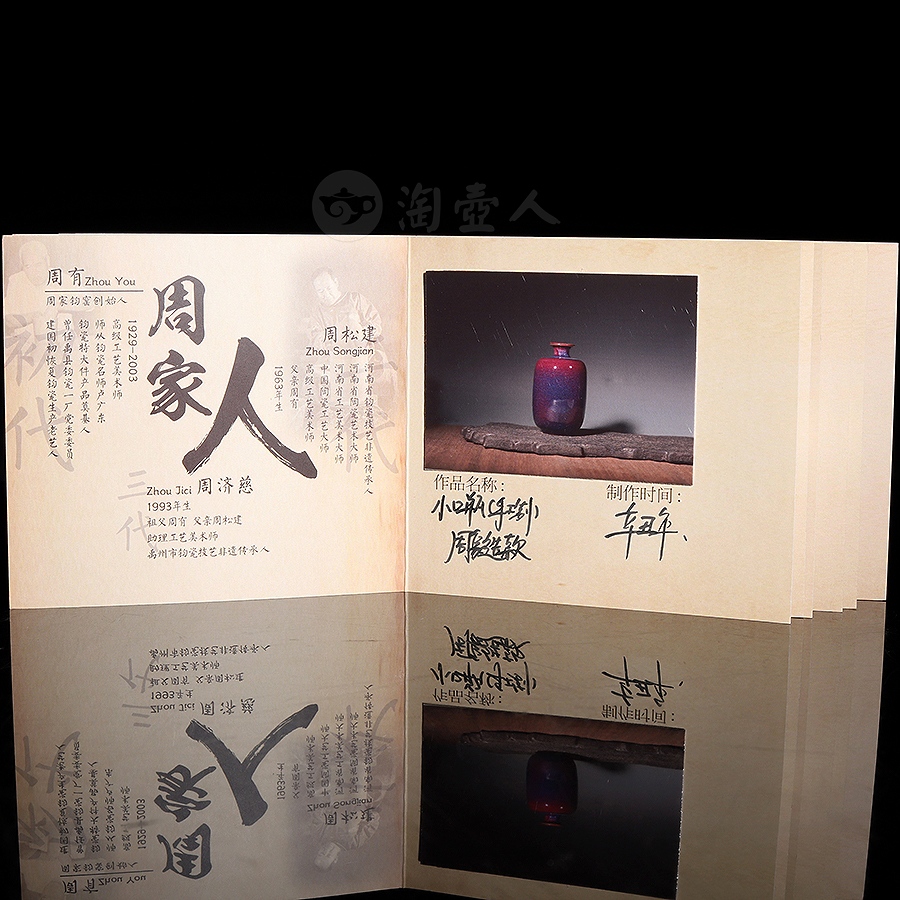 淘壶人
周有 Zhou You
周家钧窑创始人
1929-2003
高级工艺美术师
师从钧瓷名师卢广东
钧瓷特大件产品奠基人
曾任禹县钧瓷一厂党委委员
建国初恢复钧瓷生产老艺人
初代
周家人
周松建
Zhou Songjian
河南省钧瓷技艺非遗传承人
河南省陶瓷艺术大师
河南省工艺美术大师
中国陶瓷工艺大师
高级工艺美术师
父亲周有
1963年生
二代
三代
Zhou Jici 周济慈
1993年生
祖父周有 父亲周松建
助理工艺美术师
禹州市钧瓷技艺非遗传承人
作品名称：
小口瓶
制作时间：
辛丑年、